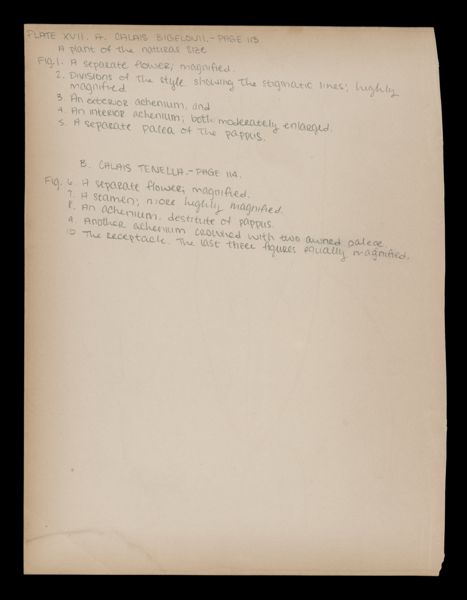 PLATE XVII. A. CALAIS BIGELOVII.-PAGE 113
A plant of the natural size
Fig.1. A separate flower, magnified.
2. Divisions of the style showing the stigmatic lines; highly
magnified
3. An exterior achenium, and
4. An interior achenium; both moderately enlarged.
5. A separate palea of the pappus.
B. CALAIS TENELLA.-PAGE 114.
Fig. 6. A separate flower; magnified.
7. A stamen; more highly magnified.
8. An achenium, destitute of pappus.
9. Another achenium crowned with two awned paleae.
10 The receptacle. The last three figures equally magnified.